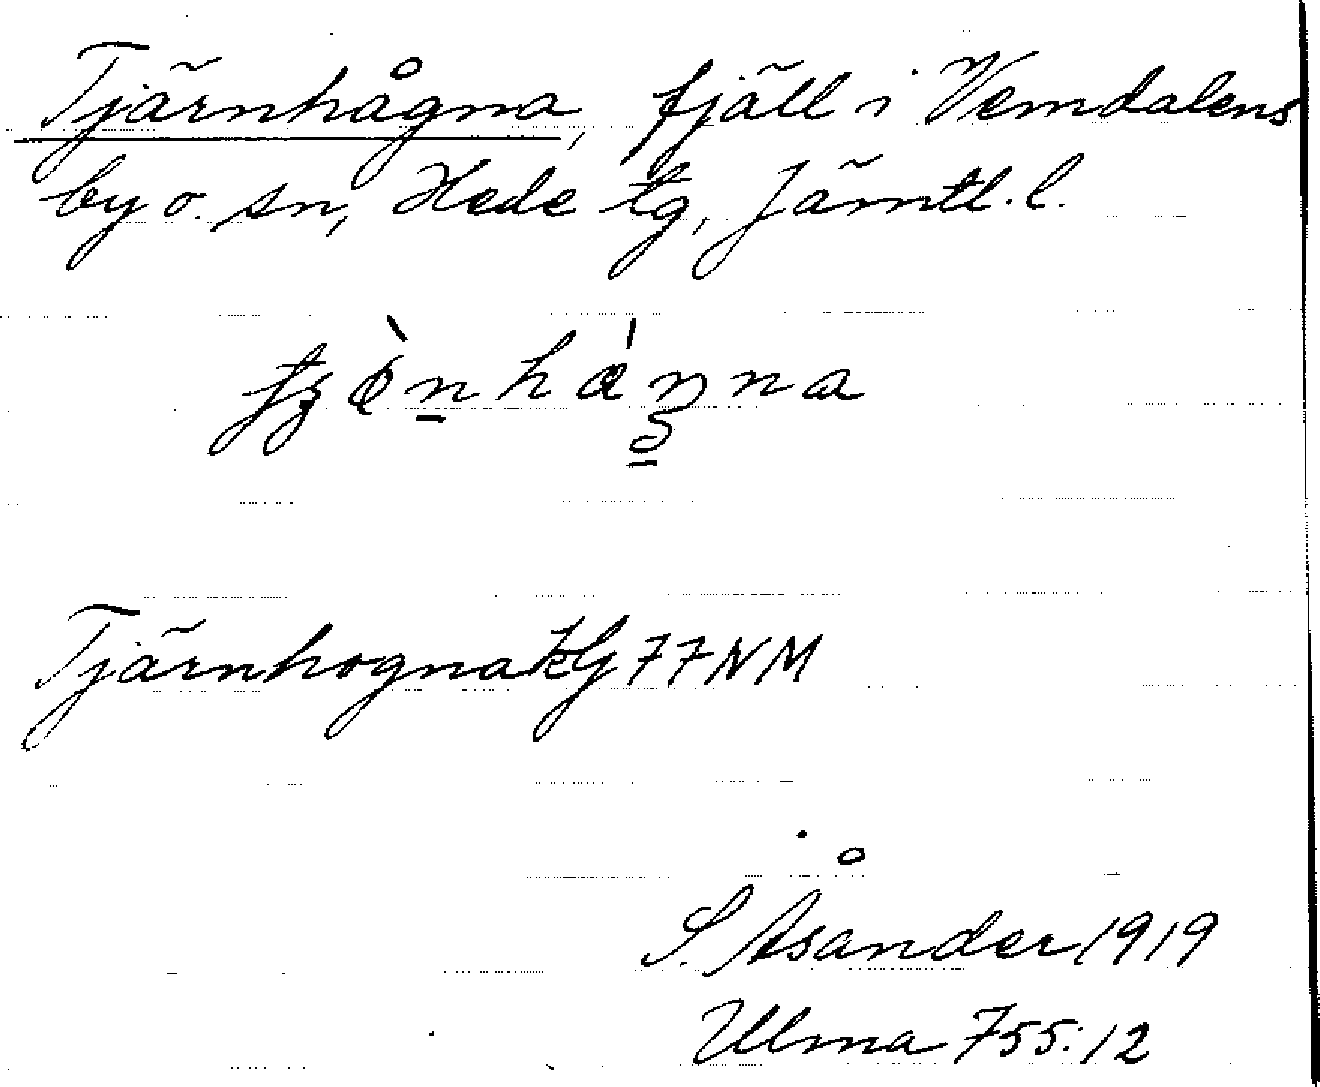 Tjärnhågna, fjäll i Vemdalens
by o. sn, Hede tg, Jämtl. l.
Tjärnhogna kG 77 NM
S. Åsander 1919
Ulma 755:12